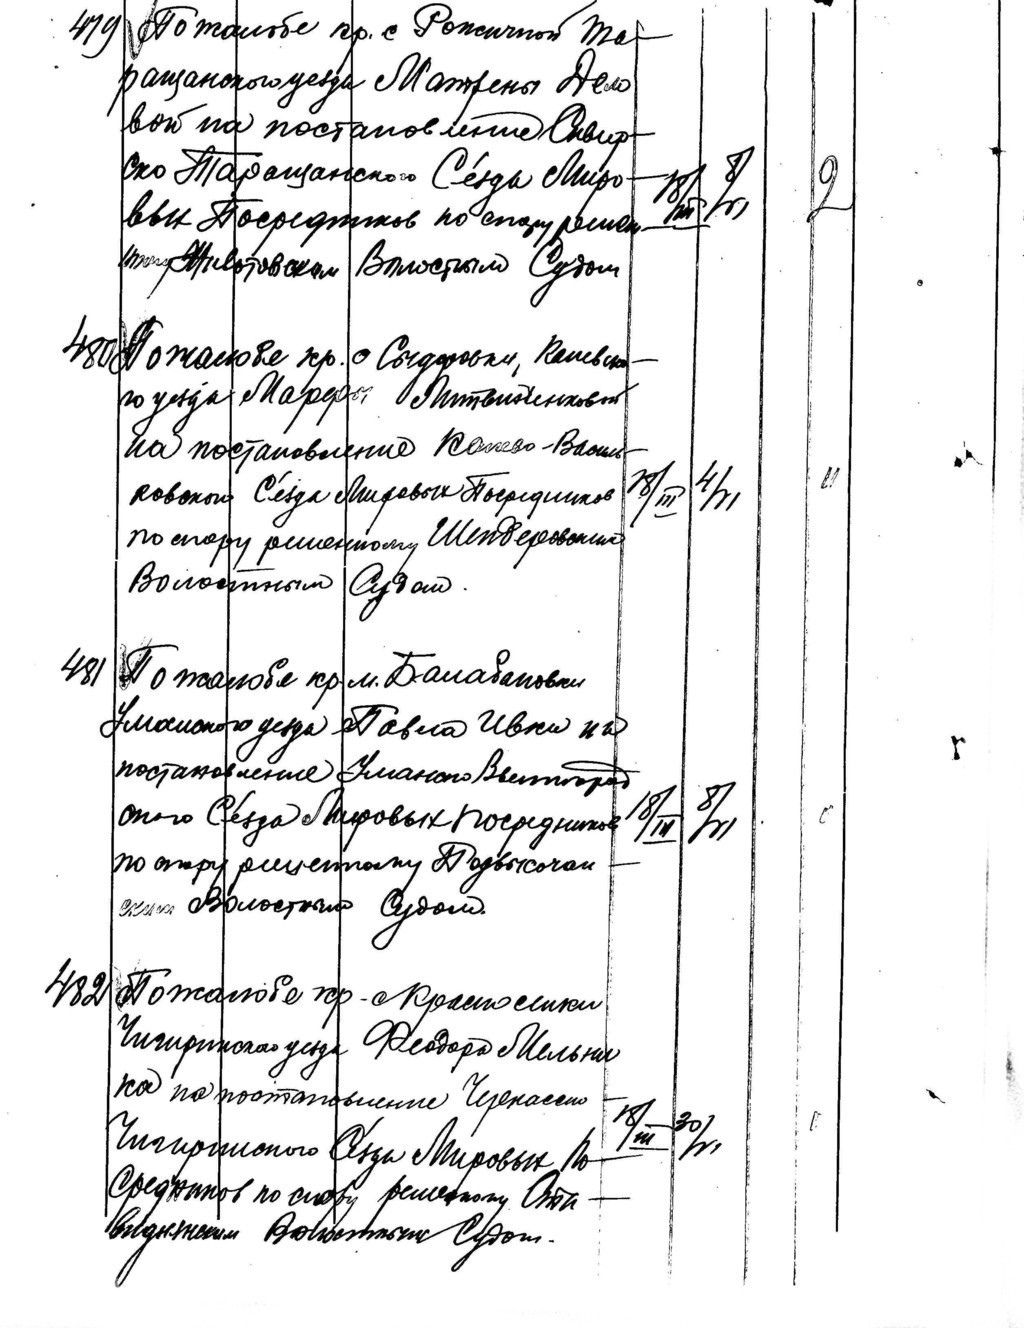 479 По жалобе кр. с Рожичной Та-
ращанского уезда Матрены Дело
вой на постановление Сквир-
ско Таращанского Съезда Миро- 18/III 8/VI 2
вых Посредников по спору решен-
ному Животовским Волостным Судом
480 По жалобе кр. с Сидоровки, Каневско-
го уезда Марфы Литвиненковой
на постановление Канево-Василь-
ковского Съезда Мировых Посредников 18/III 4/VI
по спору решенному Шендеровским
Волостным Судом.
481 По жалобе кр. м. Балабановки
Уманского уезда Павла Ивки на
постановление Уманско Звенигород
ского Съезда Мировых Посредников 18/III 8/VI
по спору решенному Подвысочан-
ским Волостным Судом.
482 По жалобе кр. с Красноселки
Чигиринского уезда Феодора Мельни
ка на постановление Черкасско-
Чигиринского Съезда Мировых По- 18/III 30/VI
средников по спору решенному Оти-
Волостным Судом.